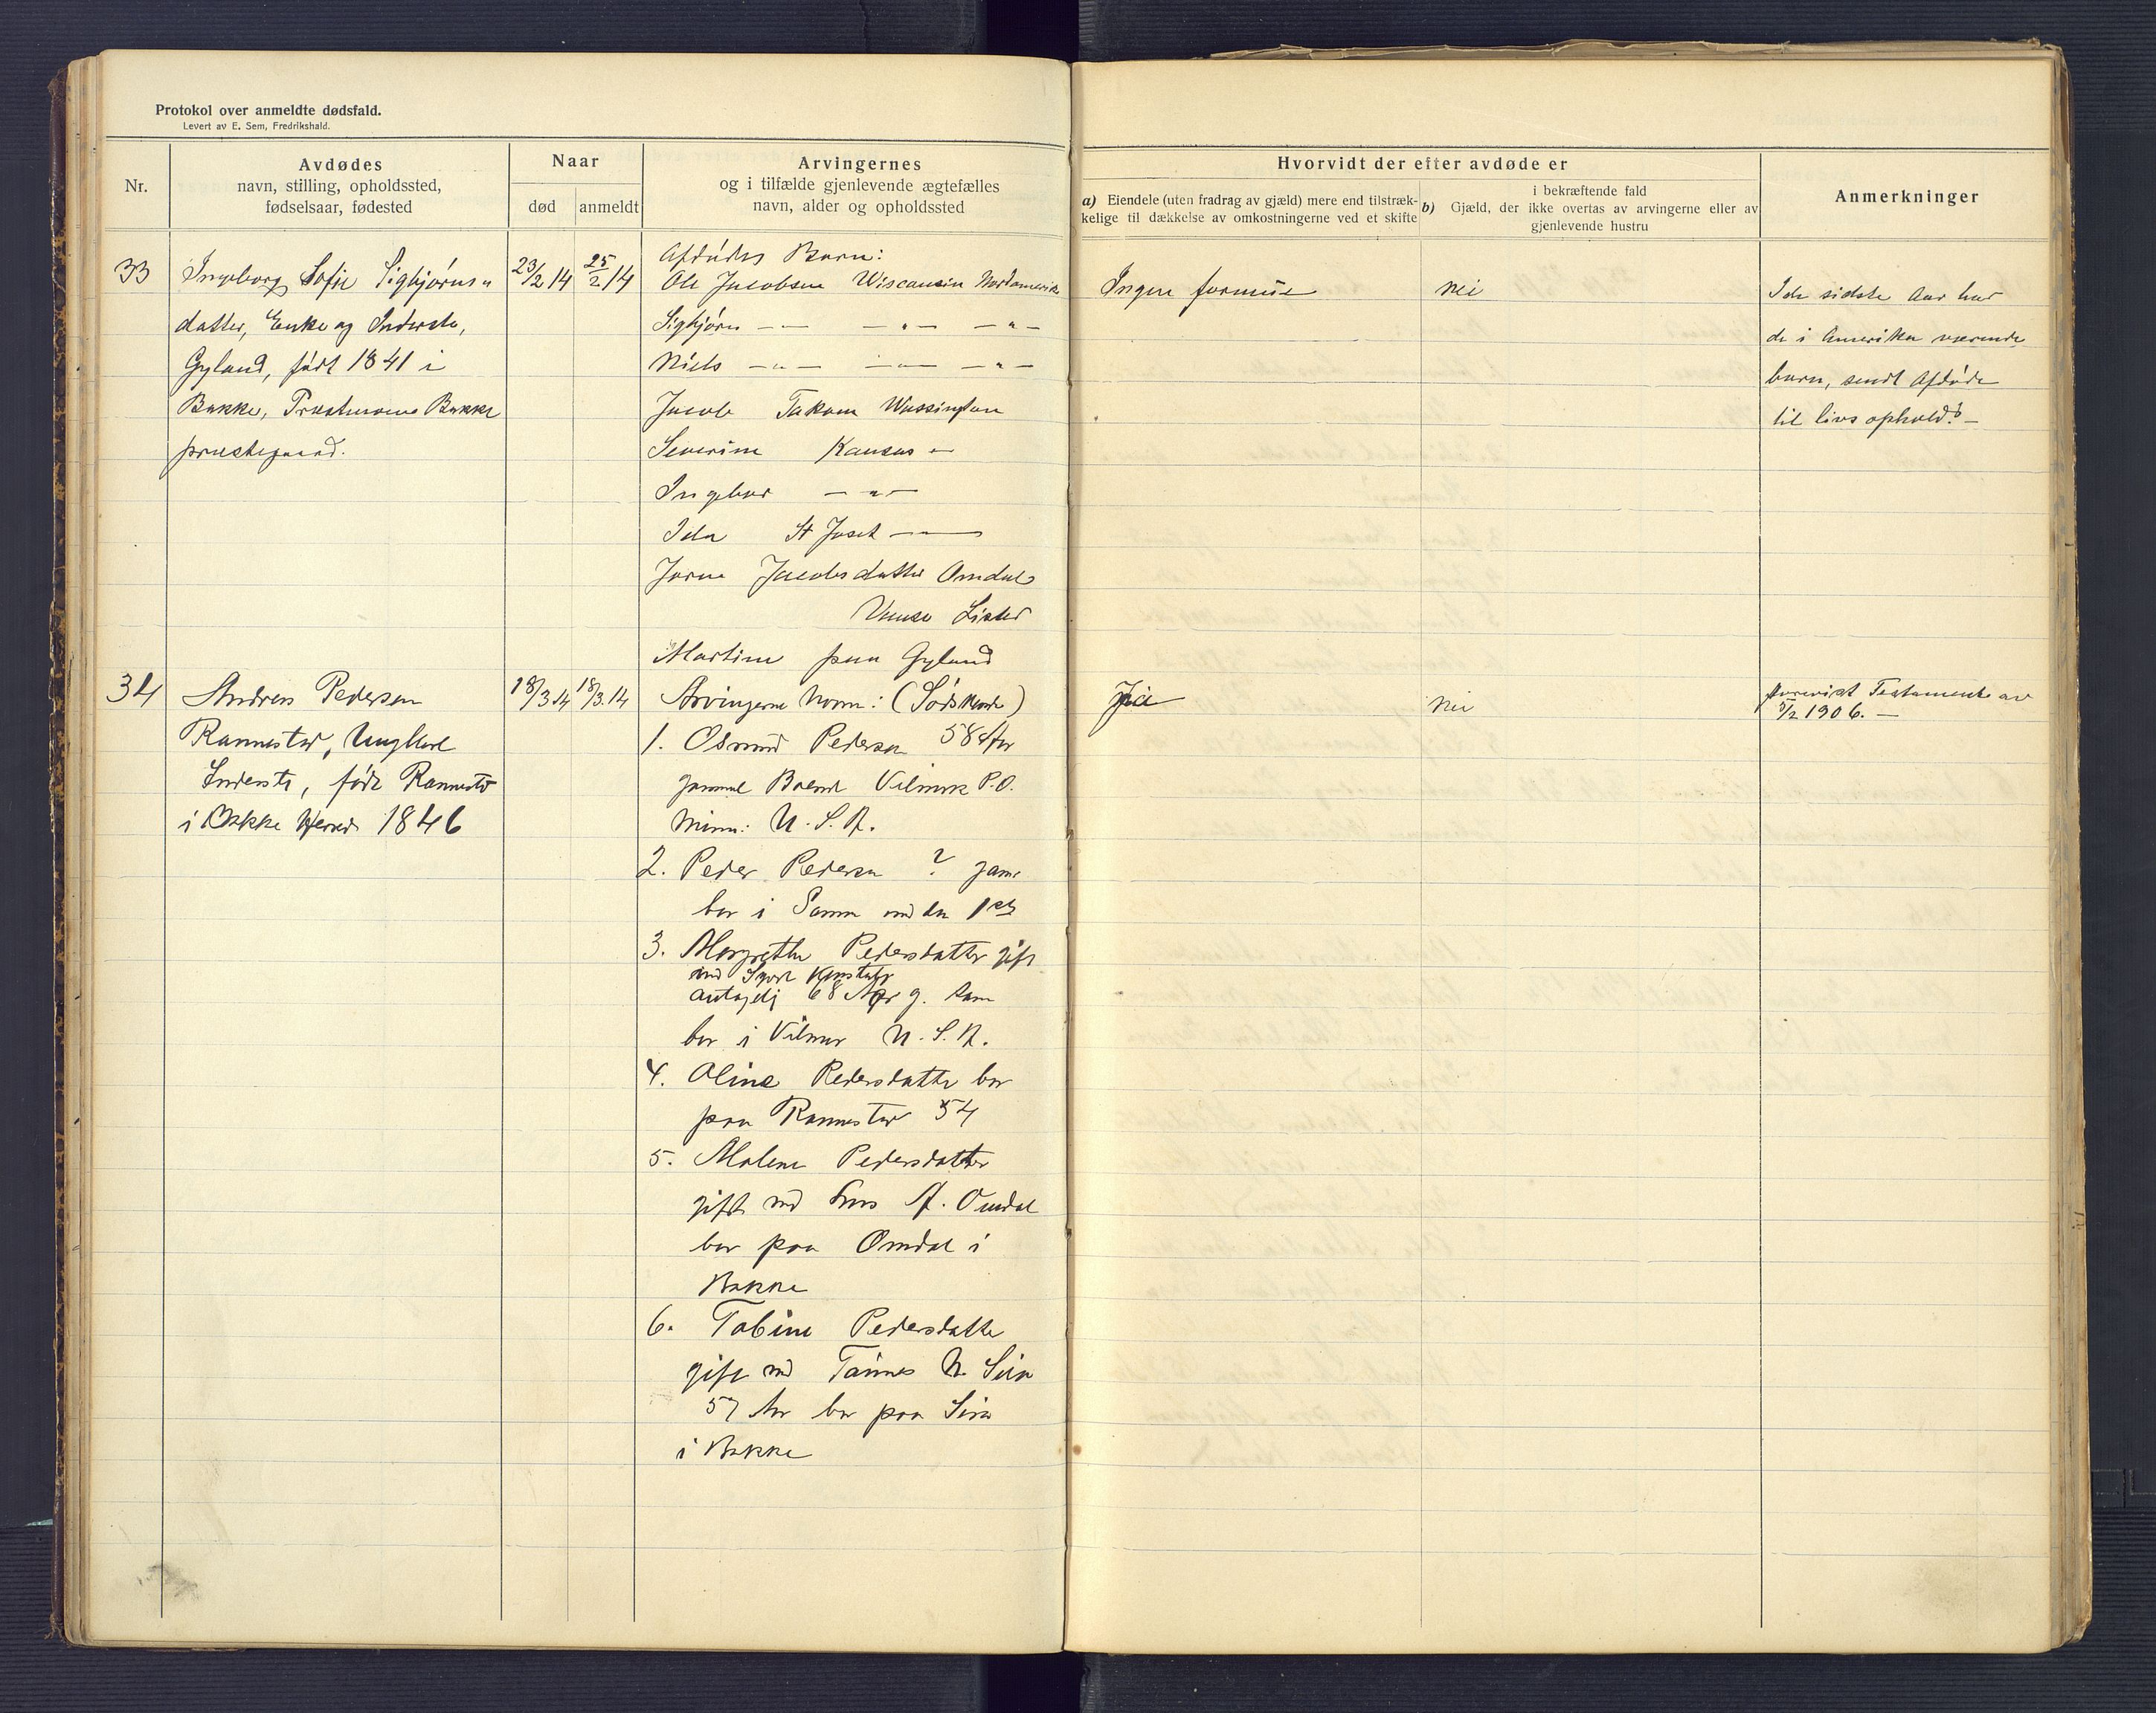 Protokol over anmeldte dødsfald.
Levert av E. Sem, Fredrikshald.
Nr.
Avdødes
navn, stilling, opholdssted,
fødselsaar, fødested
Naar
død
anmeldt
Arvingernes
og i tilfælde gjenlevende ægtefælles
navn, alder og opholdssted
Hvorvidt der efter avdøde er
a) Eiendele (uten fradrag av gjæld) mere end tilstræk-
kelige til dækkelse av omkostningerne ved et skifte
i bekræftende fald
b) Gjæld, der ikke overtas av arvingerne eller av
gjenlevende hustru
Anmerkninger
33
Ingeborg Sofie Sigbjørns-
datter, Enke og Inderste,
Gyland, født 1841 i
Bakke, Præstmoene Bakke
præstegaard.
23/2 14
25/2 14
Afdødes Børn:
Ole Jacobsen Wisconsin Nordamerika
Sigbjørn -"- -"- -"-
Niels -"- -"- -"-
Jacob Takom Wassington
Severine Kansas "
Ingebor -"-
Ida St Josef -"-
Jorne Jacobsdatter Omdal
Vanse Lister
Martine paa Gyland
Ingen formue
nei
I de sidste Aar har
de i Amerika værende
børn, sendt Afdøde
til livs ophold. -
34
Andreas Pedersen
Rannestad, Ungkarl
Inderste, født Rannestad
i Bakke Herred 1846
18/3 14
18/3. 14
Arvingerne Navn: (Sødskende)
1. Osmund Pedersen 58 Aar
gammel Boende Vilmar P.O.
Minn: U. S. A.
2. Peder Pedersen ? gaml
bor i Samme med den 1ste
3. Margrethe Pedersdatter gift
med Kanstafr
antagelig 68 Aar g. Sam
bor i Vilmar U. S. A.
4. Oline Pedersdatter bor
paa Rannestad 54
5. Malene Pedersdatter
gift med A. Omdal
bor paa Omdal i
Bakke
6. Tobine Pedersdatter
gift med Tønnes N. Sira
57 Aar bor paa Sira
i Bakke
Ja
Nei
forevist Testamente av
5/2 1906. -